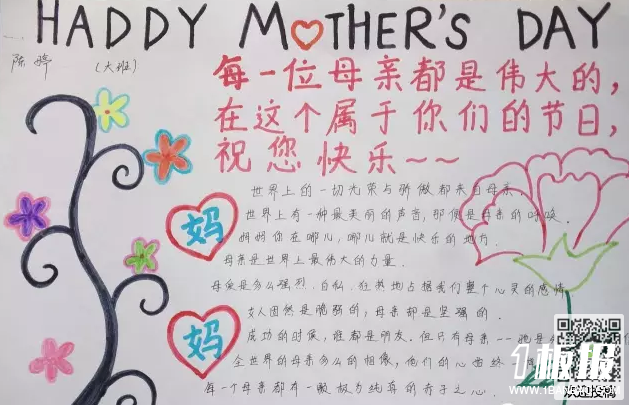 HADDY MOTHER'S DAY
陈婷
（大班）
每一位母亲都是伟大的，
在这个属于你们的节日，
祝您快乐~~
世界上的一切光荣与骄傲都来自母亲
世界上有一种最美丽的声音，那便是母亲的呼唤．
妈
妈妈你在哪儿，哪儿就是快乐的地方．
母亲是世界上最伟大的力量．
母爱是多么强烈．自私．狂热地占据我们整个心灵的感情
女人固然是脆弱的，母亲都是坚强的．
妈
成功的时候，谁都是朋友．但只有母亲--她是
全世界的母亲多么的相像，他们的心始终
每一个母亲都有一颗极为纯真的赤子之心．
1板报